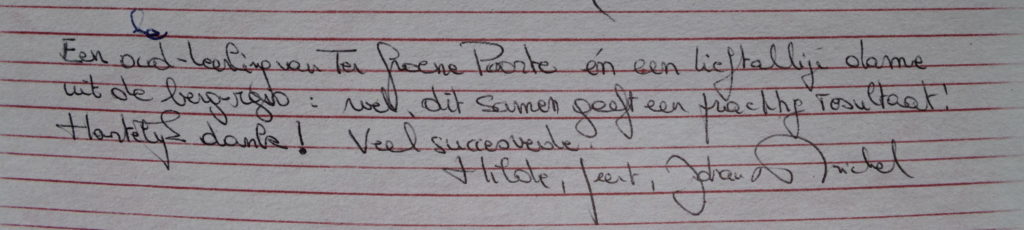 Een oud-leerling van Ter Groene Poorte én een lieftallije dame
uit de berg-regio : wel, dit samen geeft een prachtig resultaat!
Hartelijk dank! Veel succes verder.
Hilde, Geert, Johan & Michel